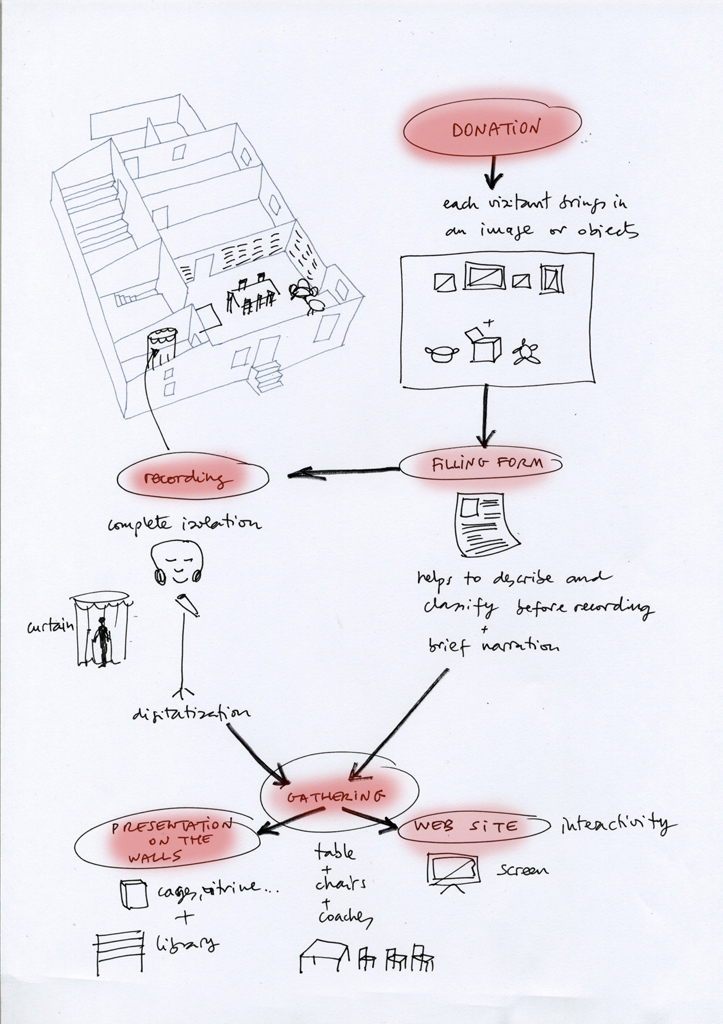 DONATION
each visitant brings in
an image or objects
+
FILLING FORM
recording
complete isolation
helps to describe and
classify before recording
+
brief narration
curtain
digitatization
GATHERING
PRESENTATION
ON THE
WALLS
WEB SITE
interactivity
table
+
chairs
+
coaches
screen
cages, vitrine...
+
library